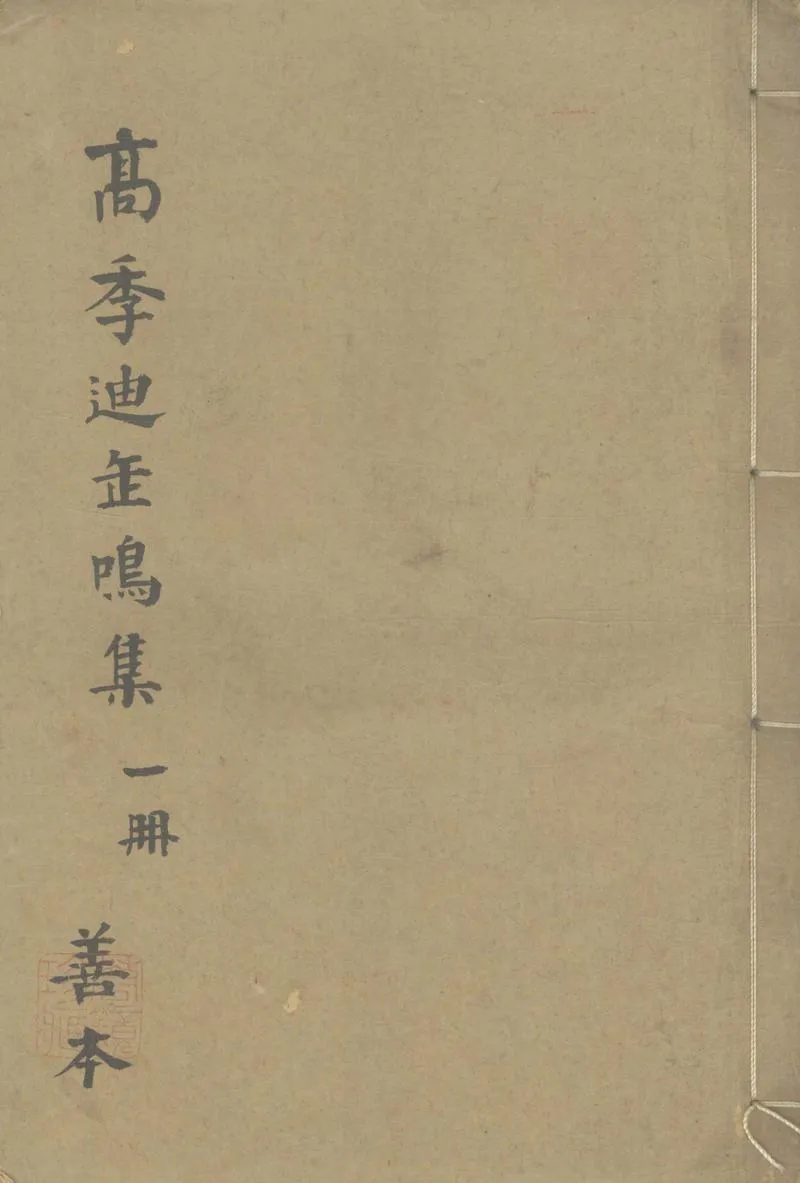 髙季迪缶鳴集
一冊
善本